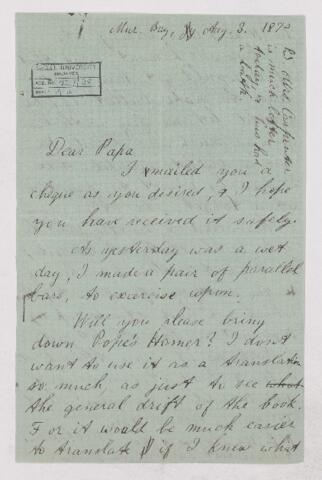 Mur. Bay, Aug. 3. 1872
PS Mrs. Carpenter
is much better
today; & has had
a
McGILL UNIVERSITY
ARCHIVES
ACC. NO.
REF.
Dear Papa
I mailed you a
cheque as you desired, & I hope
you have received it safely.
As yesterday was a wet
day, I made a pair of parallel
bars, to exercise upon.
Will you please bring
down Pope's Homer? I don't
want to use it as a translation
so much, as just to see what
the general drift of the book.
For it would be much easier
to translate if I knew what